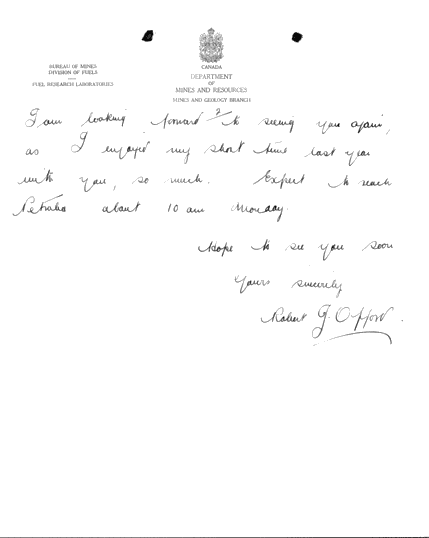 BUREAU OF MINES
DIVISION OF FUELS
FUEL RESEARCH LABORATORIES
CANADA
DEPARTMENT
OF
MINES AND RESOURCES
MINES AND GEOLOGY BRANCH
2
I am looking forward to seeing you again,
as I enjoyed my short time last year
with you, so much. Expect to reach
about 10 am Monday.
Hope to see you soon
Yours sincerely
Robert G.